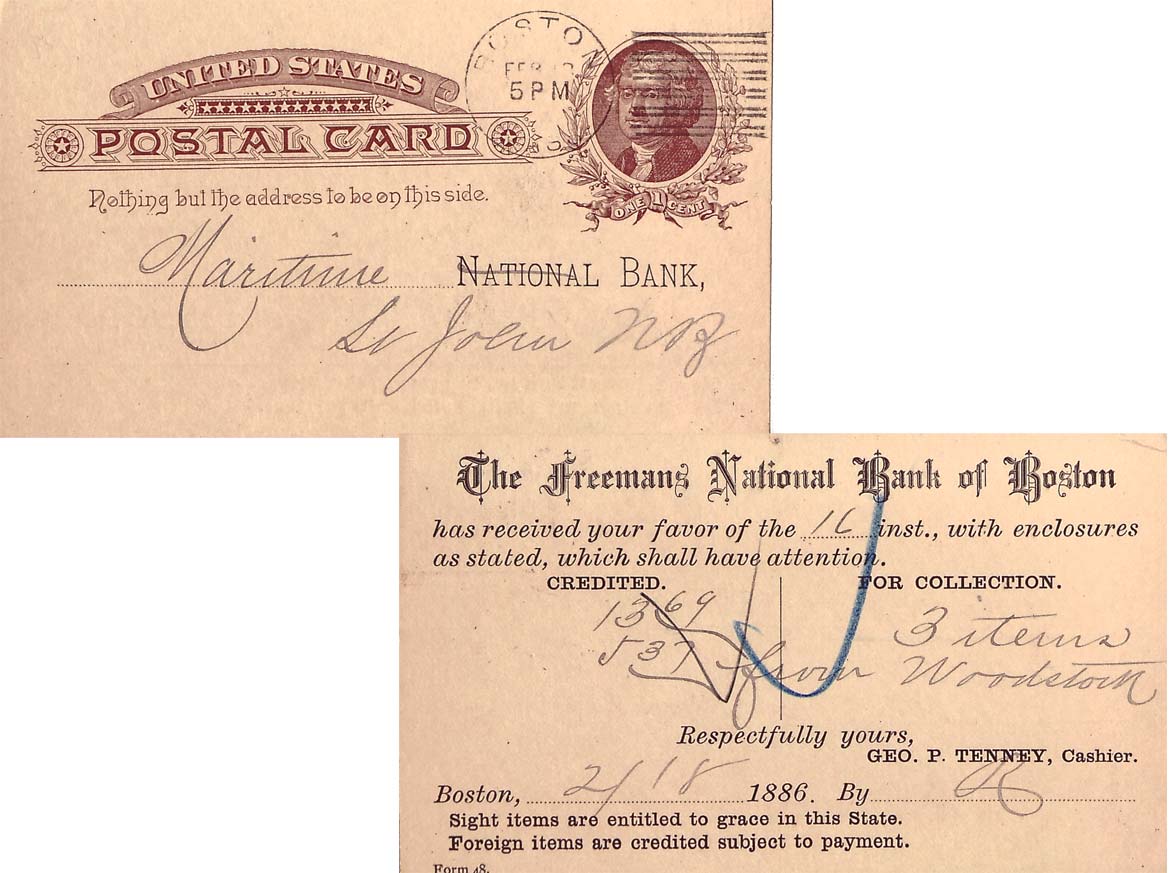 UNITED STATES
POSTAL CARD
BOSTON
FEB
5 PM
ONE 1 CENT
Nothing but the address to be on this side.
Maritime NATIONAL BANK,
St John NB
The Freemans National Bank of Boston
has received your favor of the 16 inst., with enclosures
as stated, which shall have attention.
CREDITED. FOR COLLECTION.
1369 3 items
537 from Woodstock
Respectfully yours,
GEO. P. TENNEY, Cashier.
Boston, 2/18 1886. By R
Sight items are entitled to grace in this State.
Foreign items are credited subject to payment.
Form 48.